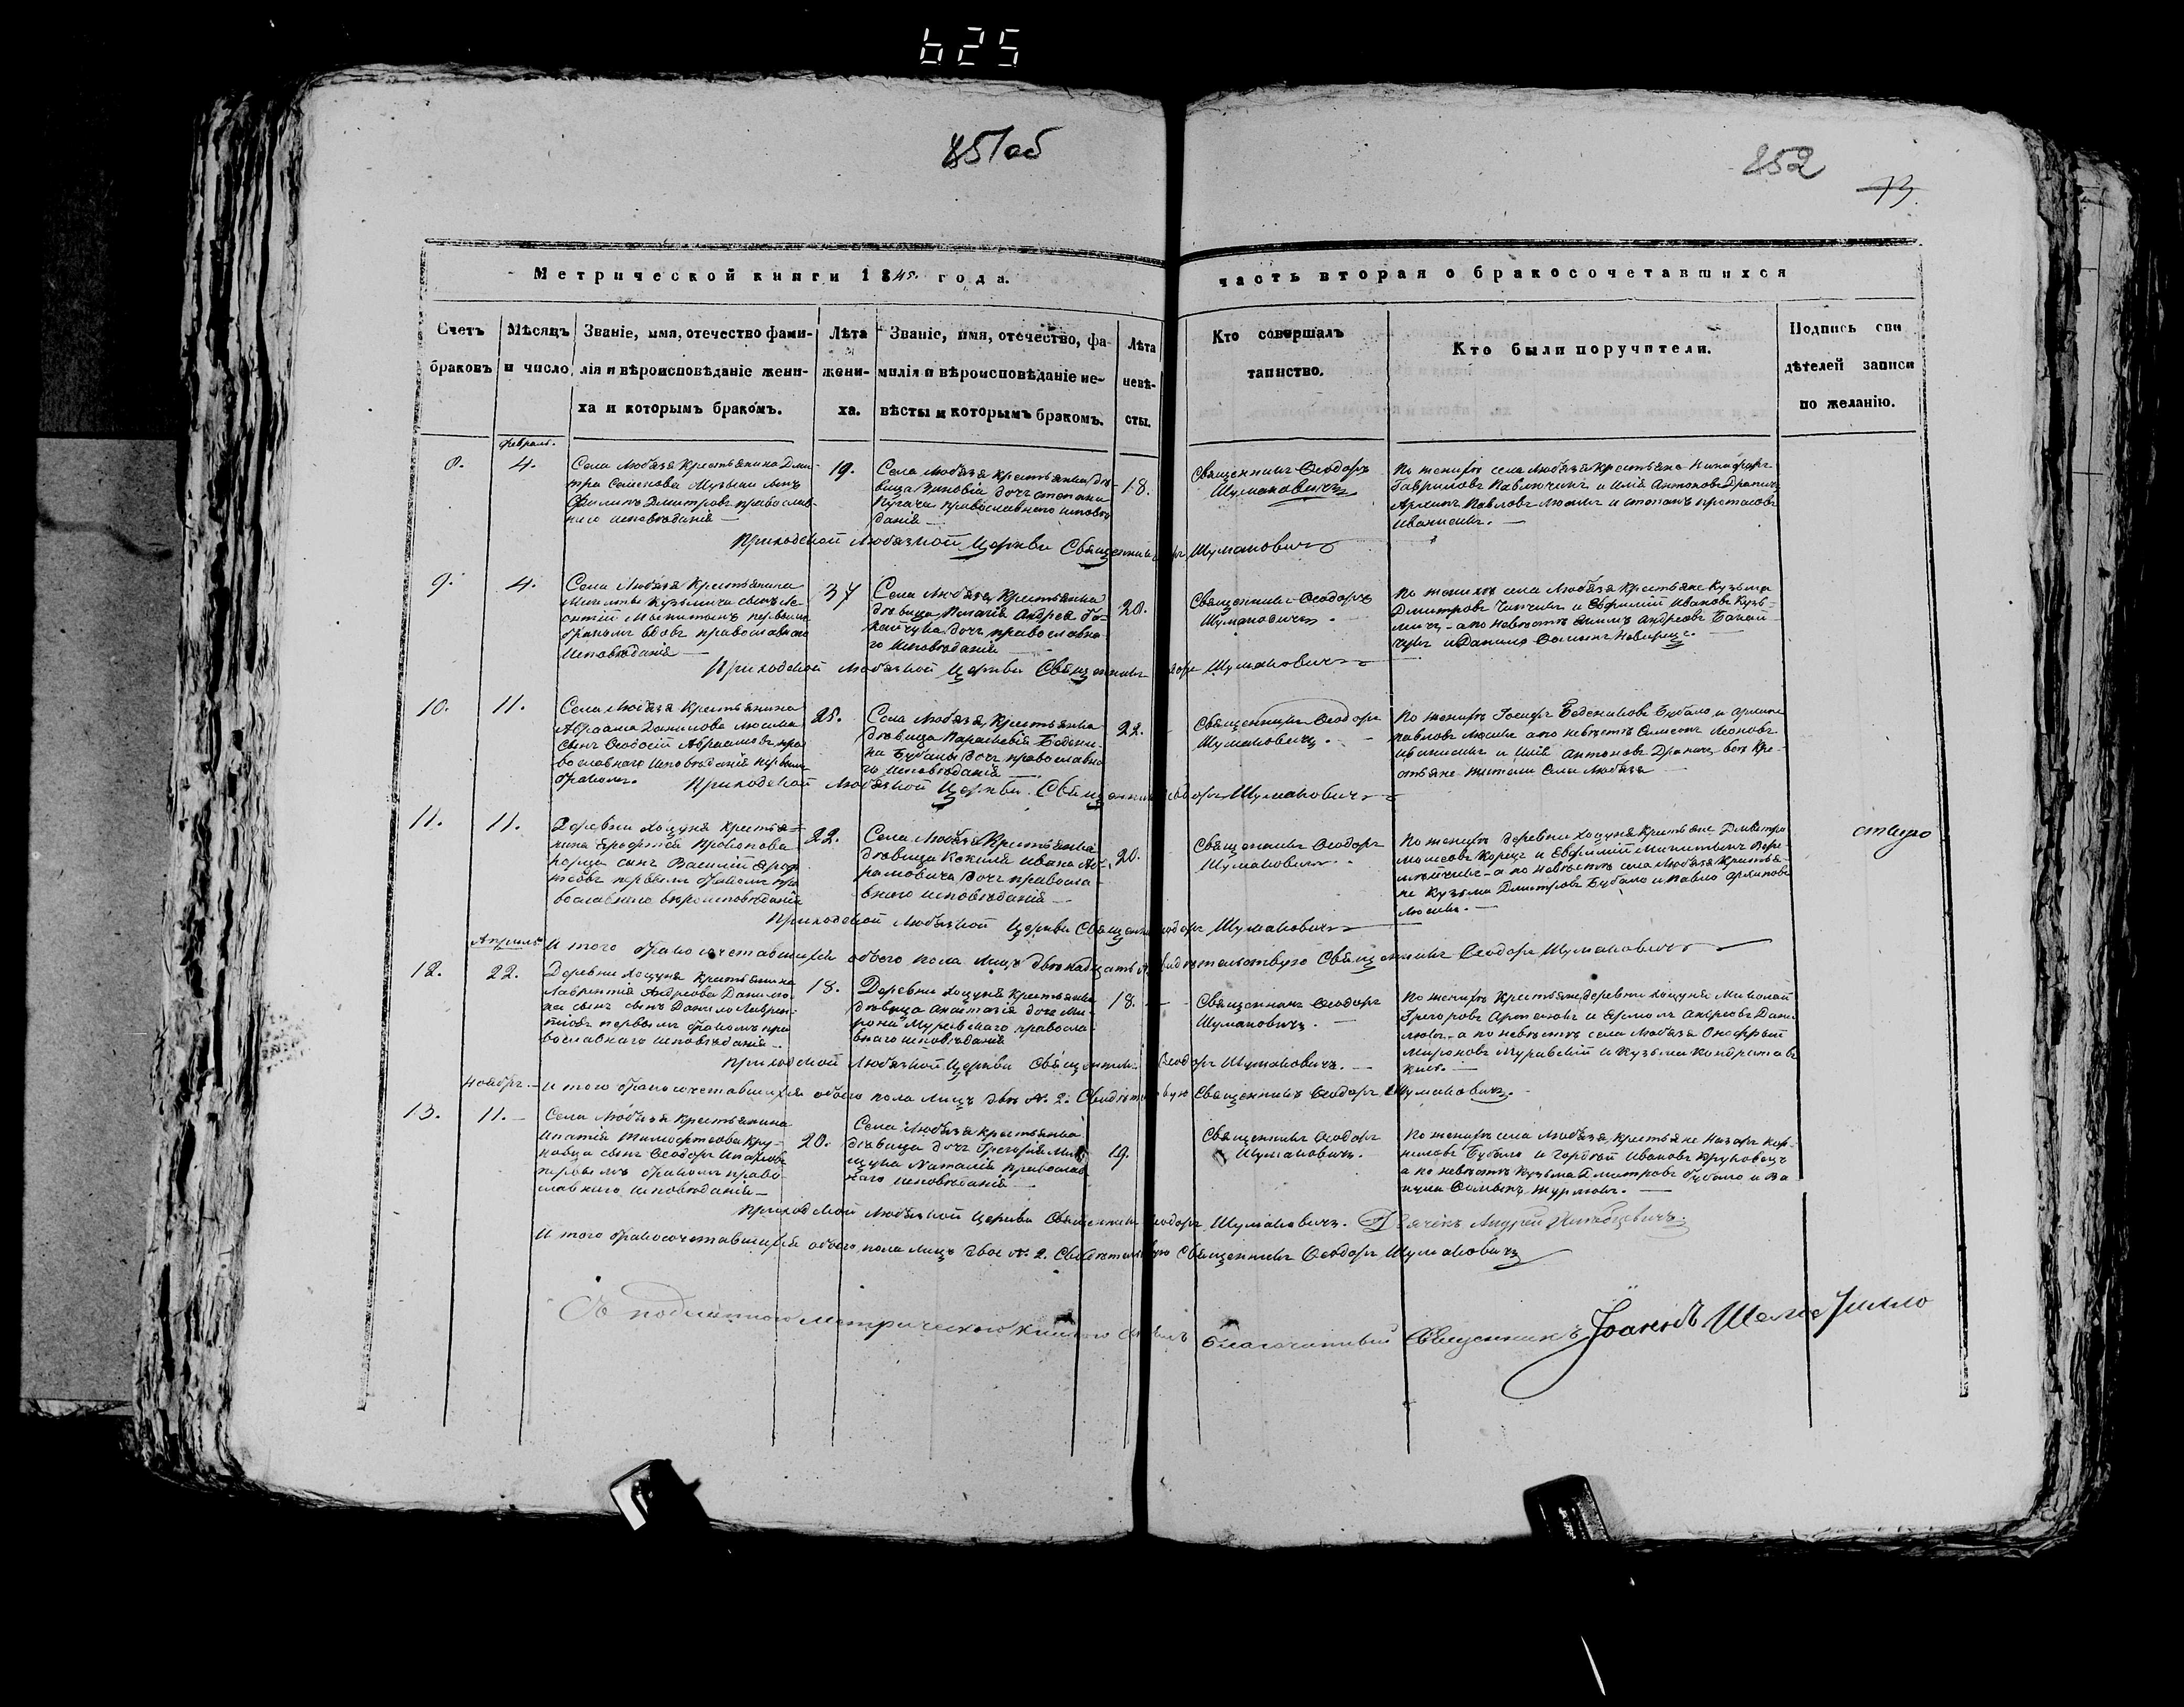 625
851об
852
73
Метрической книги 1845 года.
часть вторая о бракосочетавшихся
Счетъ браковъ
Мѣсяцъ и число
Званіе, имя, отечество фами-
лія и вѣроисповѣданіе жени-
ха и которымъ бракомъ.
Лѣта
жени-
ха.
Званіе, имя, отечество, фа-
милія и вѣроисповѣданіе не-
вѣсты и которымъ бракомъ.
Лѣта
невѣ-
сты.
Кто совершалъ
таинство.
Кто были поручители.
Подпись сви
дѣтелей записи
по желанію.
февраль.
8.
4.
Села Любязя Крестьянина Дми-
тра Семенова сынъ
Дмитровъ православ-
наго исповѣданія —
19.
Села Любязя крестьянка дѣ-
вица Зиновія дочь Степана
Пугача православнаго исповѣ
данія —
18.
Священникъ Ѳеодоръ
Шумановичъ
По женихѣ села Любязя Крестьяне Никифоръ
Гавриловъ Павлючикъ и Илія Антоновъ Драпичъ
Архипъ Павловъ Люсикъ и Степанъ Протасовъ
Иванисикъ. —
Приходской Любязкой Церкви Священникъ Шумановичъ
9.
4.
Села Любязя Крестьянина
Никиты Кузьмича сынъ Ле-
онтій Никитинъ первымъ
бракомъ вдовъ православнаго
исповѣданія —
37
Села Любязя, Крестьянка
дѣвица Пелагія Андрея Бо-
кайчука дочь православна-
го исповѣданія —
20.
Священникъ Ѳеодоръ
Шумановичъ.
По женихѣ села Любязя Крестьяне Кузьма
Дмитровъ и Евфимій Ивановъ Кузь-
мичъ — а по невѣстѣ Андреовъ Бокай-
чукъ и Данило
Приходской Любязкой Церкви Священникъ Шумановичъ
10.
11.
Села Любязя Крестьянина
Авраама Данилова Люсика
сынъ Ѳеодосій Авраамовъ пра
вославнаго исповѣданія первымъ
бракомъ.
25.
Села Любязя, Крестьянка
дѣвица Параскевія
на Бубалы дочь православна
го исповѣданія
22.
Священникъ Ѳеодоръ
Шумановичъ.
По женихѣ Іосифъ Бубало и Архипъ
Павловъ Люсикъ а по невѣстѣ Симеонъ Леоновъ
Иванисикъ и Илія Антоновъ Драпичъ всѣ Кре-
стьяне жители Села Любязя —
Приходской Любязкой Церкви Священникъ Ѳеодоръ Шумановичъ
11.
11.
Деревни Хоцуня Крестья-
нина Ерофтея Прокопова
Корца сынъ Василій Ероф
теовъ первымъ бракомъ пра
вославнаго вѣроисповѣданія
22.
Села Любязя Крестьянка
дѣвица Кекилія Ивана Аб-
рамовича дочь правосла-
внаго исповѣданія —
20.
Священникъ Ѳеодоръ
Шумановичъ.
По женихѣ деревни Хоцуня Крестьяне Дмитро
Моисеовъ Корецъ и Евфимій Никитинъ
— а по невѣстѣ села Любязя Крестья-
не Кузьма Дмитровъ Бубало и Павло Архиповъ
Люсикъ. —
Приходской Любязкой Церкви Священникъ Ѳеодоръ Шумановичъ
Итого бракосочетавшихся обоего пола лицъ двѣнадцать Священникъ Ѳеодоръ Шумановичъ
Апрѣль
12.
22.
Деревни Хоцуня Крестьянина
Лаврентія Андреова Данилю-
ка сынъ сынъ Данило Лаврен-
тіовъ первымъ бракомъ пра
вославнаго исповѣданія —
18.
Деревни Хоцуня Крестьянка
дѣвица Анастасія дочь Ми-
рона Муравскаго правосла-
внаго исповѣданія
18.
Священникъ Ѳеодоръ
Шумановичъ.
По женихѣ Крестьяне деревни Хоцуня Миколай
Грегоровъ Артюховъ и Ермолъ Андреовъ Дани-
люкъ — а по невѣстѣ села Любязя Онофрій
Мироновъ Муравскій и Кузьма Кондратовъ
Приходской Любязкой Церкви Священникъ Ѳеодоръ Шумановичъ. —
Итого бракосочетавшихся обоего пола лицъ двѣ № 2. Свидѣтельствую Священникъ Ѳеодоръ Шумановичъ.
Ноябрь.
13.
11.
Села Любязя Крестьянина
Ипатія Тимофтеова Кру-
ковца сынъ Ѳеодоръ Ипатіовъ
первымъ бракомъ право-
славнаго исповѣданія —
20.
Села Любязя крестьянка
дѣвица дочь Грегорія
Наталія православ
наго исповѣданія —
19.
Священникъ Ѳеодоръ
Шумановичъ.
По женихѣ села Любязя, крестьяне Назаръ Кор-
ниловъ Бубало и Гордѣй Ивановъ Круковецъ
а по невѣстѣ Кузьма Дмитровъ Бубало и
Приходской Любязкой Церкви Священникъ Ѳеодоръ Шумановичъ. Дьячекъ Андрей
Итого бракосочетавшихся обоего пола лицъ двое № 2. Свидѣтельствую Священникъ Ѳеодоръ Шумановичъ
Съ подлинною метрическою книгою Благочинный Священникъ Іоаннъ